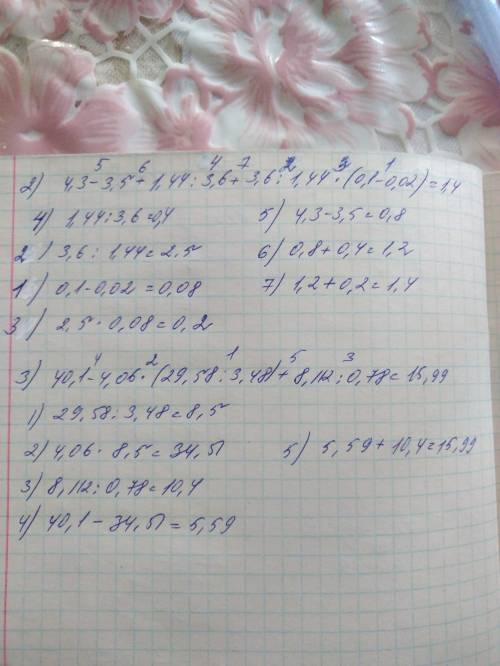 5 6 4 7 2 3 1
2) 4,3-3,5+1,44:3,6+3,6:1,44·(0,1-0,02)=1,4
4) 1,44:3,6=0,4 5) 4,3-3,5=0,8
2) 3,6:1,44=2.5 6) 0,8+0,4=1,2
1) 0,1-0,02=0,08 7) 1,2+0,2=1,4
3) 2,5·0,08=0,2
4 2 1 5 3
3) 40,1-4,06·(29,58:3,48)+8,112:0,78=15,99
1) 29,58:3,48=8,5
2) 4,06·8,5=34,51 5) 5,59+10,4=15,99
3) 8,112:0,78=10,4
4) 40,1-34,51=5,59